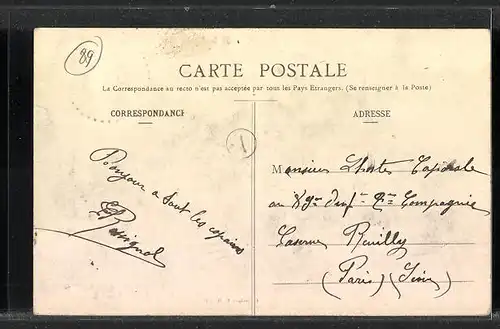 89
CARTE POSTALE
La Correspondance au recto n'est pas acceptée par tous les Pays Etrangers. (Se renseigner à la Poste)
CORRESPONDANCE
Bonjour a tout les copains
Rossignol
ADRESSE
Monsieur Lhoste Caporale
au Compagnie
Caserne Reuilly
(Paris) (Seine)